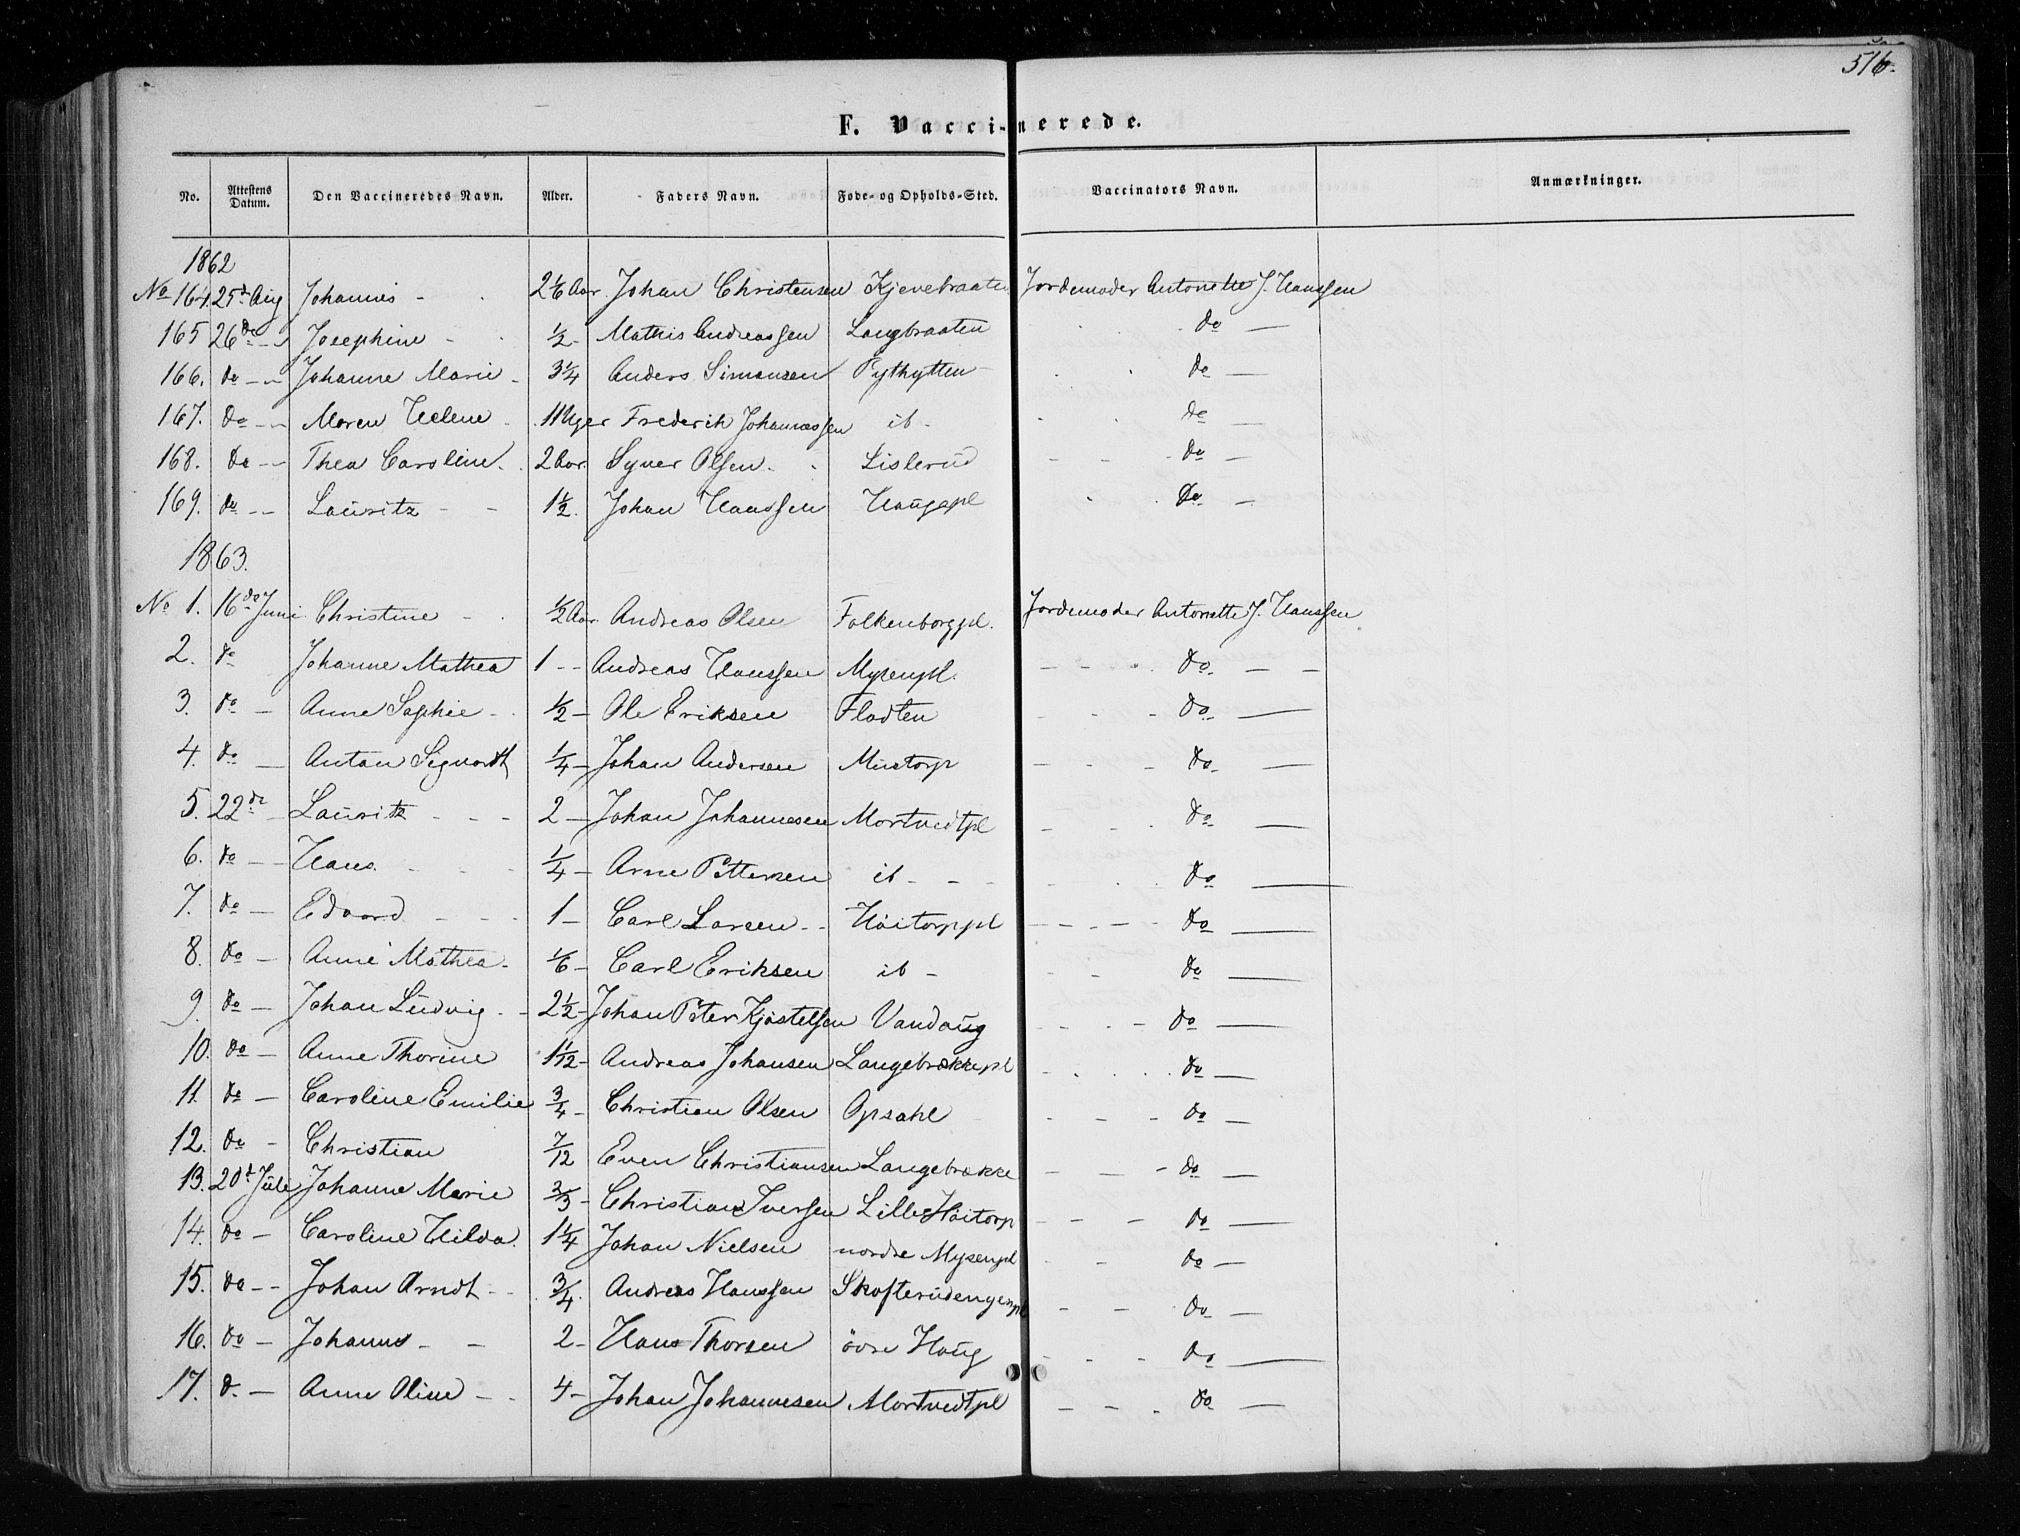 516.
F. Vacci-nerede.
No. Attestens Datum. Den Vaccineredes Navn. Alder. Faders Navn. Føde- og Opholds-Sted. Vaccinators Navn. Anmærkninger.
1862
No 164. 25d Aug Johannes - 2 1/6 Aar. Johan Christensen Kjenebraaten Jordemoder Antonette J. Hanssen
165 26de - - Josephine - 1/2 - Mathis Andreassen Langbraaten do —
166. do - - Johanne Marie - 3 1/4 Anders Simensen Pythytten do —
167. do - - Maren Helene - 11 Uger Frederik Johannessen ib - do —
168. do - - Thea Caroline. 2 Aar. Syver Olsen - Lislerud do —
169. do - - Lauritz - - 1 1/2. Johan Hanssen Haugepl do —
1863.
No 1. 16de Juni Christine - 1/2 Aar. Andreas Olsen Folkenborgpl. Jordemoder Antonette J. Hanssen
2. do Johanne Mathea 1 - - Andreas Hanssen Mysenpl. do — —
3. do - Anne Sophie - 1/2 - Ole Eriksen Fladten do —
4. do - Anton Sigvardt 1/4 - Johan Andersen Mietorp do —
5. 22de - Lauritz - - - 2 - Johan Johannesen Mortvedtpl do —
6. do - - Hans. - - - 1/4 - Arne Pettersen ib - - do —
7. do - Edvard - - - 1 - Carl Larsen - - Høitorppl do —
8. do - Anne Mathea - 1/6 - Carl Eriksen ib - do —
9. do - Johan Ludvig - - 2 1/2 - Johan Peter Kjøstelsen Vandaug do —
10. do - Anne Thorine 1 1/12 - Andreas Johansen Langebrækkepl do —
11. do - Caroline Emilie 3/4 - Christian Olsen Opsahl do —
12. do - Christian 7/12 Even Christiansen Langebrække do —
13. 20d Juli Johanne Marie 2/3 - Christian Iversen Lille Høitorp do —
14. do - Caroline Hilda. 1 1/4 Johan Nielsen nordre Mysenpl do —
15. do - - Johan Arndt - - 3/4. Andreas Hanssen Skofterudengenpl do —
16. do - Johannes - - 2 - Hans Thorsen øvre Haug do —
17. d. - Anne Oline - - 4 - Johan Johannesen Mortvedtpl do —